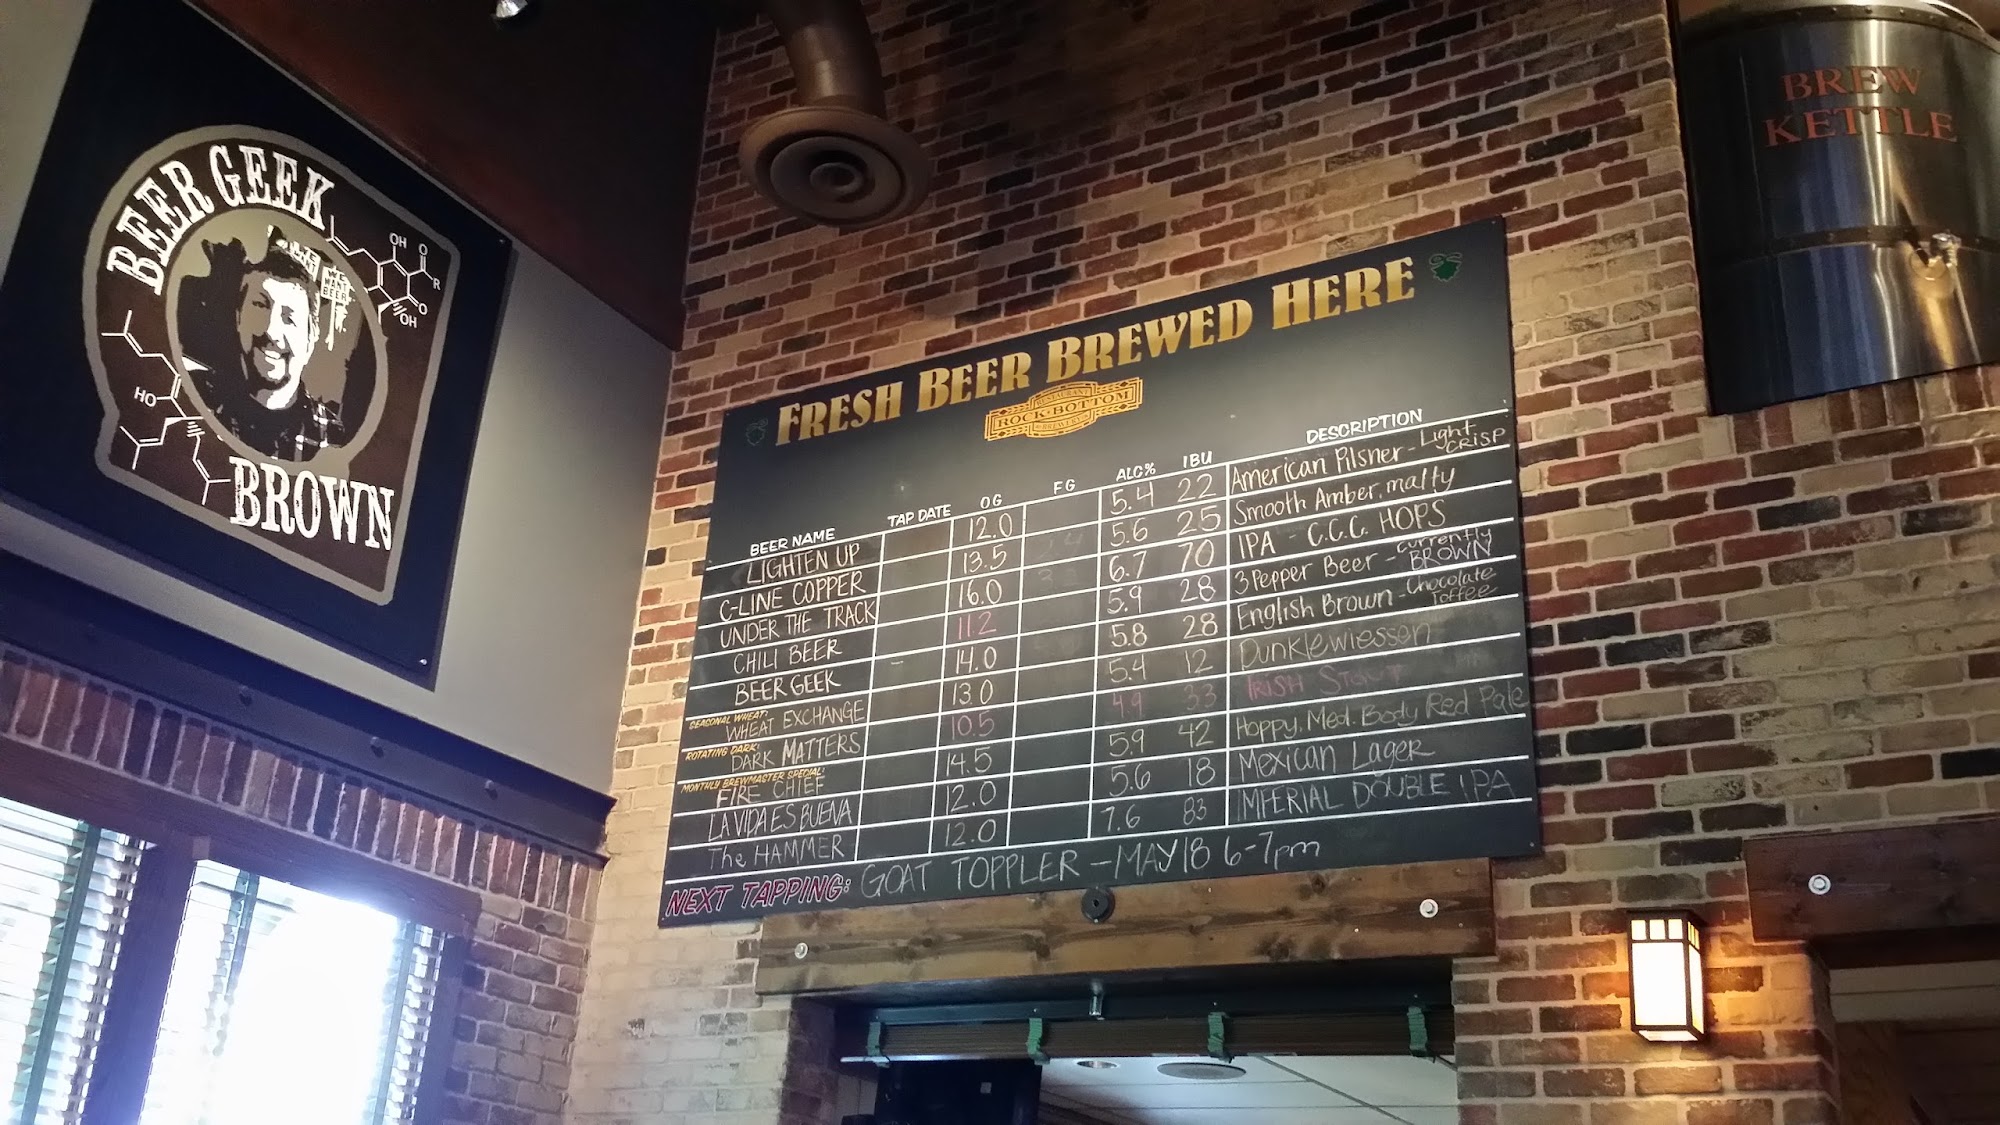 BEER GEEK
BROWN
WE WANT BEER
OH
O
R
O
OH
HO
BREW
KETTLE
FRESH BEER BREWED HERE
RESTAURANT
ROCK BOTTOM
BREWERY
BEER NAME TAP DATE OG FG ALC% IBU DESCRIPTION
LIGHTEN UP 12.0 5.4 22 American Pilsner - Light CRISP
C-LINE COPPER 13.5 5.6 25 Smooth Amber, malty
UNDER THE TRACK 16.0 6.7 70 IPA - C.C.C. HOPS
CHILI BEER 11.2 5.9 28 3 Pepper Beer - currently BROWN
BEER GEEK 14.0 5.8 28 English Brown - Chocolate Toffee
SEASONAL WHEAT:
WHEAT EXCHANGE 13.0 5.4 12 Dunklewiessen
ROTATING DARK:
DARK MATTERS 10.5 4.9 33 IRISH STOUT
MONTHLY BREWMASTER SPECIAL:
FIRE CHIEF 14.5 5.9 42 Hoppy, Med. Body Red Pale
LA VIDA ES BUENA 12.0 5.6 18 Mexican Lager
The HAMMER 12.0 7.6 83 IMPERIAL DOUBLE IPA
NEXT TAPPING: GOAT TOPPLER - MAY 18 6-7pm